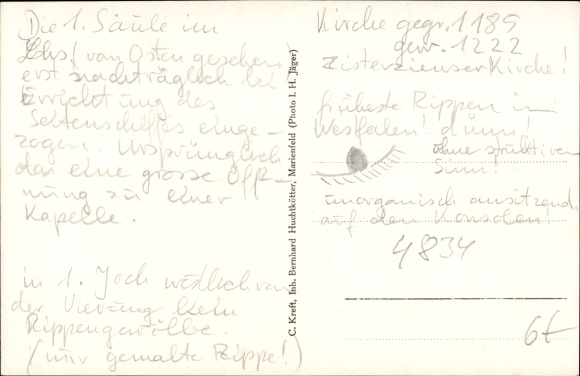 Die 1. Säule im
Lhs. (von Osten gesehen)
erst nachträglich bei
Errichtung des
Seitenschiffes einge-
zogen. Ursprünglich
da eine grosse Öff-
nung zu einer
Kapelle.
in 1. Joch westlich von
der Vierung kein
Rippengewölbe.
(nur gemalte Rippe!)
C. Kreft, Inh. Bernhard Huchtkötter, Marienfeld (Photo I. H. Jäger)
Kirche gegr. 1185
gew. 1222
Zisterzienser Kirche!
früheste Rippen in
Westfalen! dünn!
ohne struktiven
Sinn!
unorganisch ansitzend
auf den Konsolen!
4834
6€